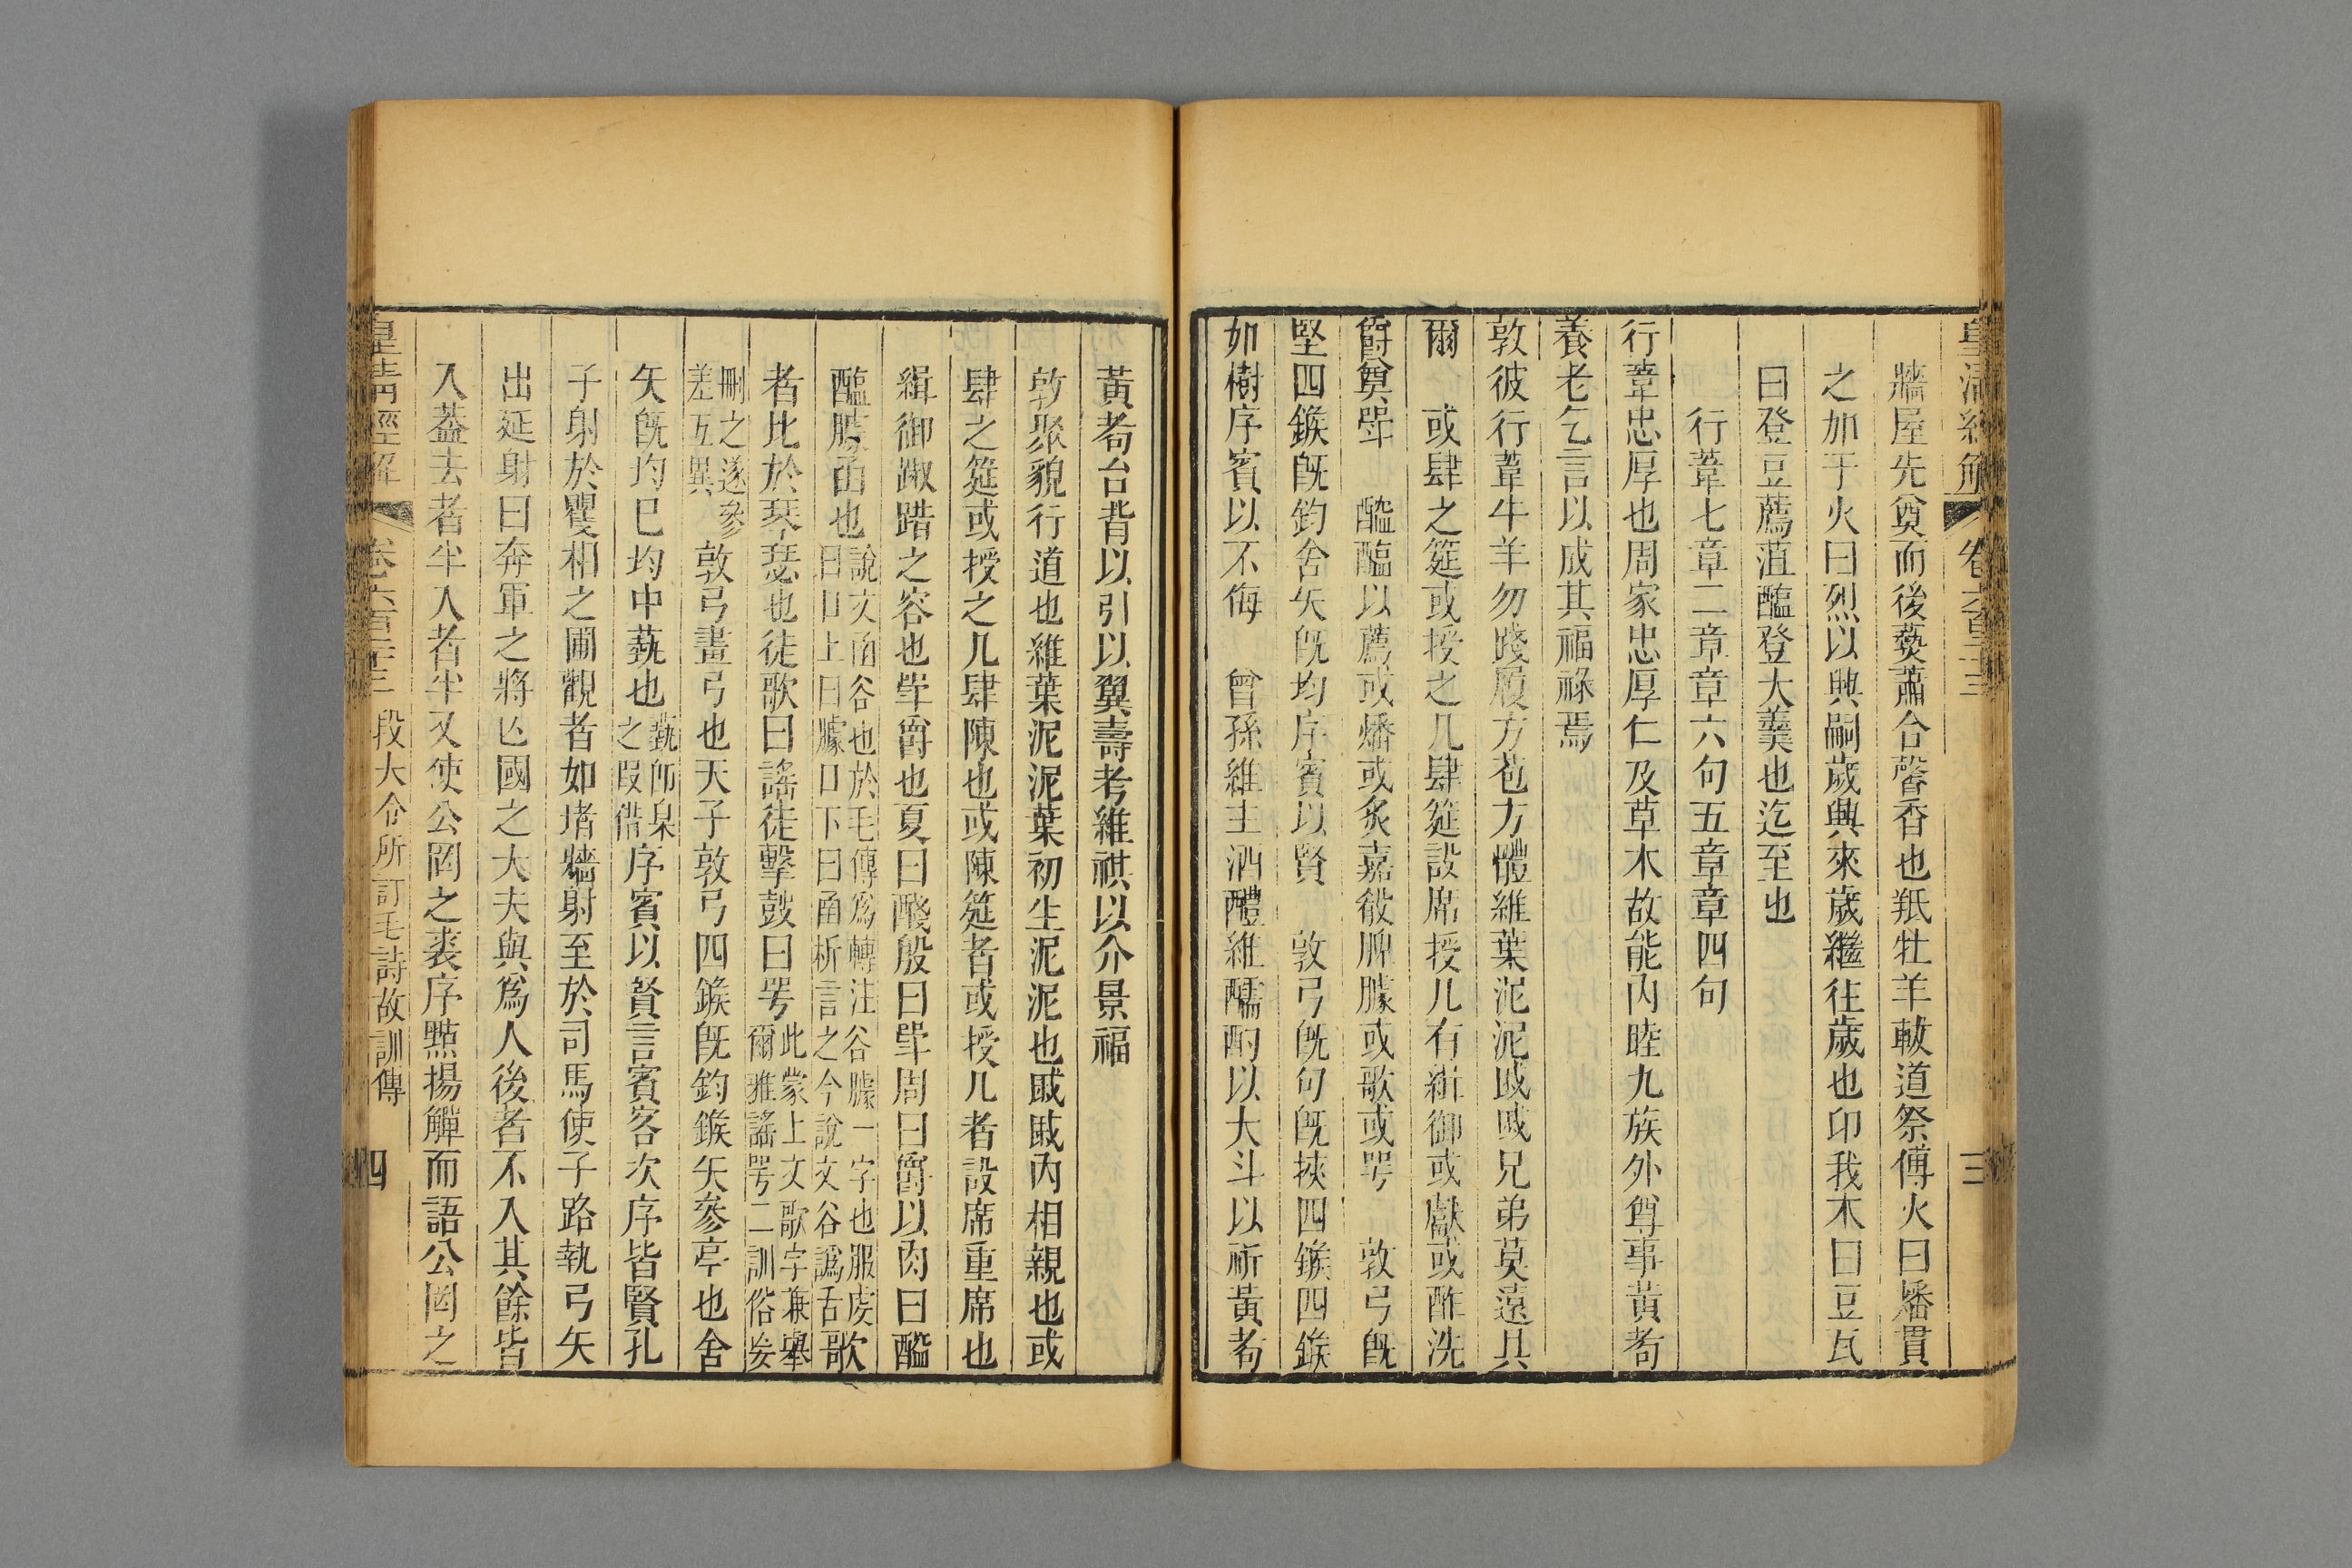 皇清經解 卷六百二十三 三
牆屋先奠而後爇蕭合馨香也羝牡羊軷道祭傅火曰燔貫
之加于火曰烈以興嗣歲興來歲繼往歲也卬我木曰豆瓦
曰登豆薦菹醢登大羹也迄至也
行葦七章二章章六句五章章四句
行葦忠厚也周家忠厚仁及草木故能內睦九族外尊事黃耇
養老乞言以成其福祿焉
敦彼行葦牛羊勿踐履方苞方體維葉泥泥戚戚兄弟莫遠具
爾 或肆之筵或授之几肆筵設席授几有緝御或獻或酢洗
爵奠斝 醓醢以薦或燔或炙嘉殽脾臄或歌或咢 敦弓旣
堅四鍭旣鈞舍矢旣均序賓以賢 敦弓旣句旣挾四鍭四鍭
如樹序賓以不侮 曾孫維主酒醴維醹酌以大斗以祈黃耇
黃耇台背以引以翼壽考維祺以介景福
敦聚貌行道也維葉泥泥葉初生泥泥也戚戚內相親也或
肆之筵或授之几肆陳也或陳筵者或授几者設席重席也
緝御踧踖之容也斝爵也夏曰醆殷曰斝周曰爵以肉曰醓
醢臄函也說文函谷也於毛傳爲轉注谷臄一字也服虔曰口上曰臄口下曰函析言之今說文谷譌舌歌
者比於琴瑟也徒歌曰謠徒擊鼓曰咢此蒙上文歌字兼舉爾雅謠咢二訓俗妄
刪之遂參差互異敦弓畫弓也天子敦弓四鍭旣鈞鍭矢參亭也舍
矢旣均巳均中蓺也蓺卽臬之假借序賓以賢言賓客次序皆賢孔
子射於矍相之圃觀者如堵牆射至於司馬使子路執弓矢
出延射曰奔軍之將亾國之大夫與爲人後者不入其餘皆
入蓋去者半入者半又使公罔之裘序點揚觶而語公罔之
皇清經解 卷六百二十三 段大令所訂毛詩故訓傳 四